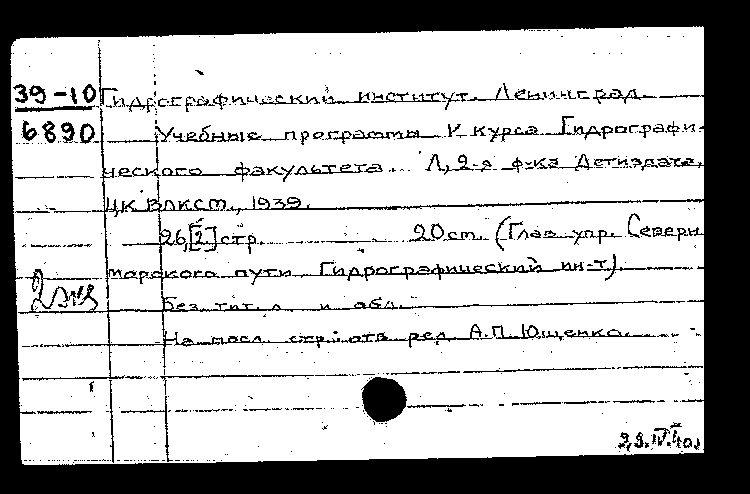 39-10 Гидрографический институт. Ленинград.
6890 Учебные программы V курса Гидрографи-
ческого факультета. Л, 2-я ф-ка Детиздата,
ЦК ВЛКСМ, 1939.
26,[2] стр. 20 см. (Глав. упр. Северн.
морского пути. Гидрографический ин-т).
2 экз Без тит. л. и обл.
На посл. стр.: отв. ред. А.П. Ющенко.